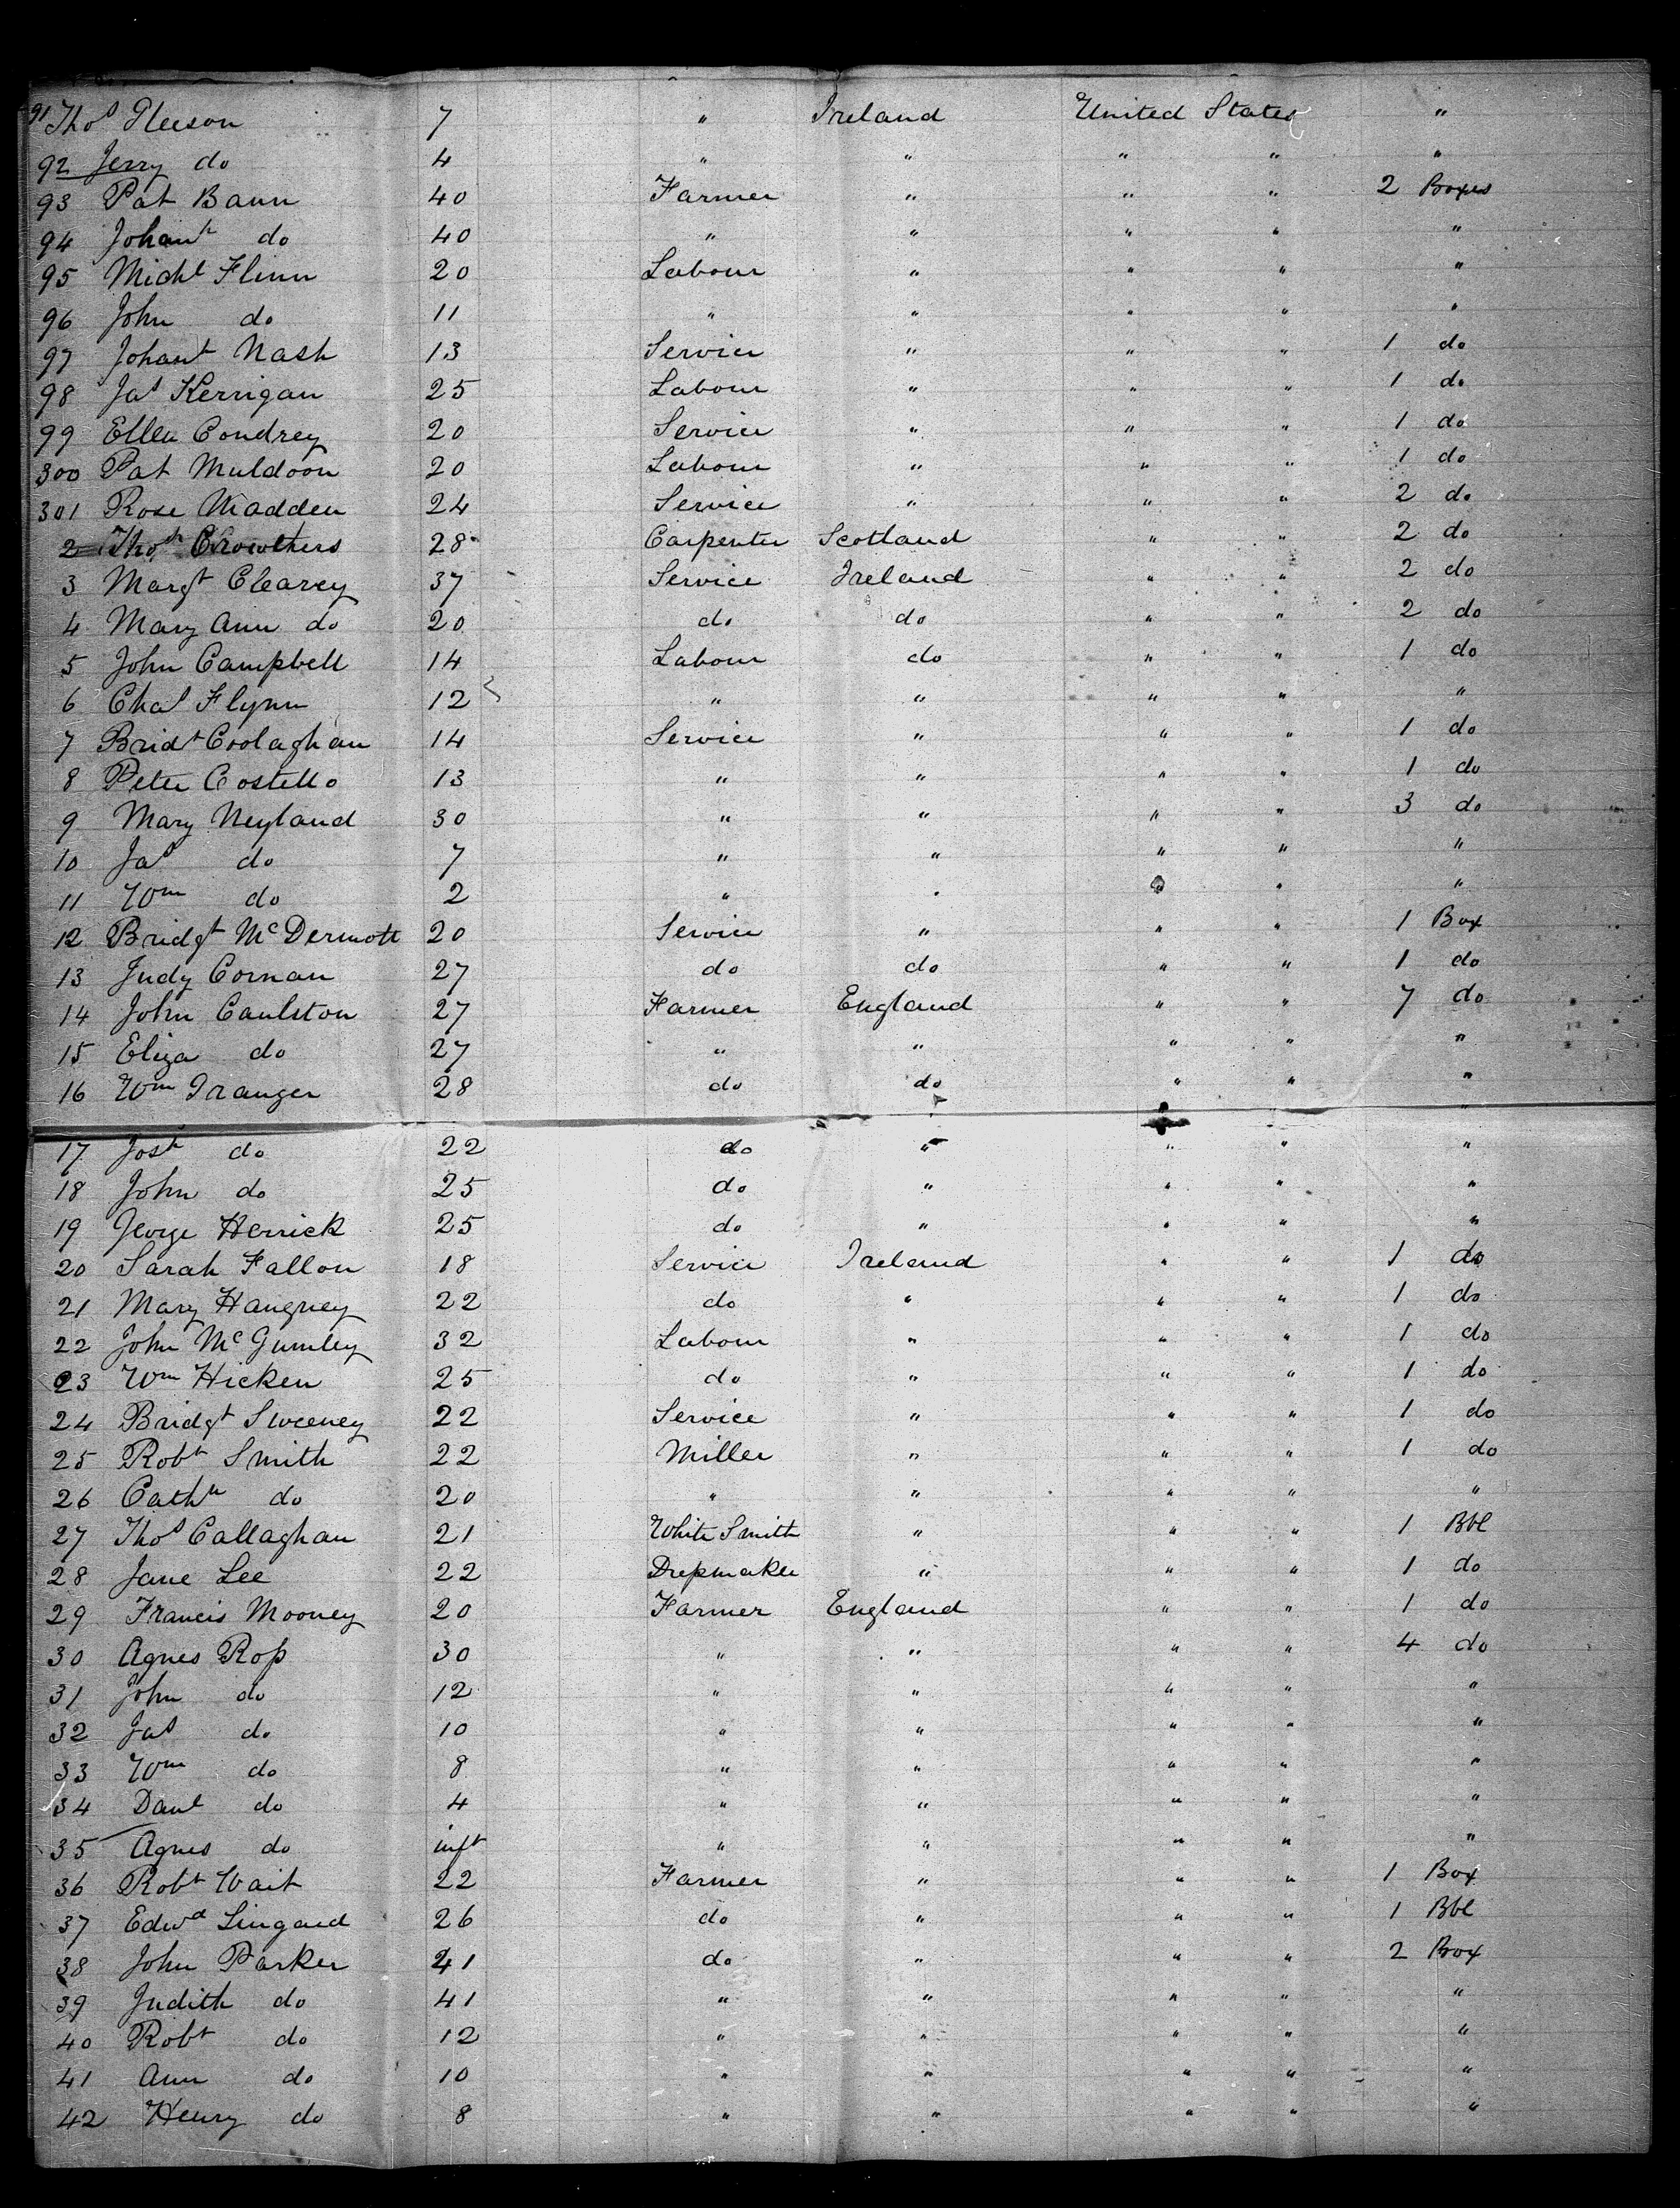 91 Thos Gleeson 7 " Ireland United States "
92 Jerry do 4 " " " " "
93 Pat Bann 40 Farmer " " " 2 Boxes
94 Johant do 40 " " " " "
95 Michl Flinn 20 Labour " " " "
96 John do 11 " " " " "
97 Johant Nash 13 Service " " " 1 do
98 Jas Kerrigan 25 Labour " " " 1 do
99 Ellen Condrey 20 Service " " " 1 do
300 Pat Muldoon 20 Labour " " " 1 do
301 Rose Madden 24 Service " " " 2 do
2 Thos Crowthers 28 Carpenter Scotland " " 2 do
3 Margt Clearey 37 Service Ireland " " 2 do
4 Mary Ann do 20 do do " " 2 do
5 John Campbell 14 Labour do " " 1 do
6 Chas Flynn 12 " " " " "
7 Bridt Coolaghan 14 Service " " " 1 do
8 Peter Costello 13 " " " " 1 do
9 Mary Neyland 30 " " " " 3 do
10 Jas do 7 " " " " "
11 Wm do 2 " " " " "
12 Bridgt McDermott 20 Service " " " 1 Box
13 Judy Cornan 27 do do " " 1 do
14 John Caulston 27 Farmer England " " 7 do
15 Eliza do 27 " " " " "
16 Wm Granger 28 do do " " "
17 Josh do 22 do " " " "
18 John do 25 do " " " "
19 George Herrick 25 do " " " "
20 Sarah Fallon 18 Service Ireland " " 1 do
21 Mary Hangney 22 do " " " 1 do
22 John McGumley 32 Labour " " " 1 do
23 Wm Hicken 25 do " " " 1 do
24 Bridgt Sweeney 22 Service " " " 1 do
25 Robt Smith 22 Miller " " " 1 do
26 Cathn do 20 " " " " "
27 Thos Callaghan 21 White Smith " " " 1 Bbl
28 Jane Lee 22 Dressmaker " " " 1 do
29 Francis Mooney 20 Farmer England " " 1 do
30 Agnes Ross 30 " " " " 4 do
31 John do 12 " " " " "
32 Jas do 10 " " " " "
33 Wm do 8 " " " " "
34 Danl do 4 " " " " "
35 Agnes do inft " " " " "
36 Robt Wait 22 Farmer " " " 1 Box
37 Edwd Lingard 26 do " " " 1 Bbl
38 John Parker 41 do " " " 2 Box
39 Judith do 41 " " " " "
40 Robt do 12 " " " " "
41 Ann do 10 " " " " "
42 Henry do 8 " " " " "